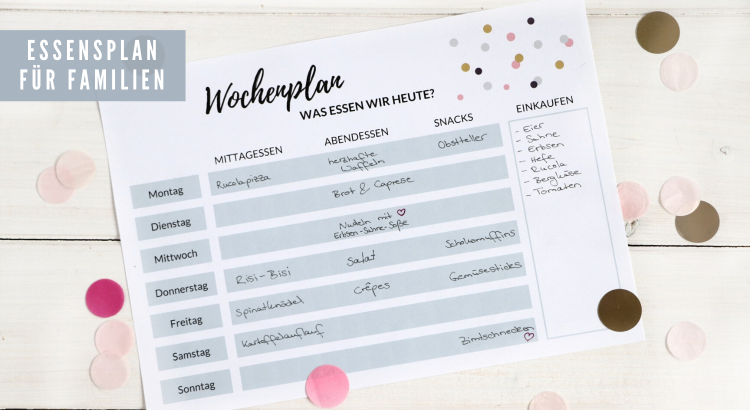 ESSENSPLAN
FÜR FAMILIEN
Wochenplan
WAS ESSEN WIR HEUTE?
MITTAGESSEN ABENDESSEN SNACKS
Montag Rucolapizza herzhafte Waffeln Obstteller
Dienstag Brot & Caprese
Mittwoch Nudeln mit
Erbsen-Sahne-Soße
Donnerstag Risi-Bisi Salat Schokomuffins
Freitag Spinatknödel Crêpes Gemüsesticks
Samstag Kartoffelauflauf
Sonntag Zimtschnecken
EINKAUFEN
- Eier
- Sahne
- Erbsen
- Hefe
- Rucola
- Bergkäse
- Tomaten